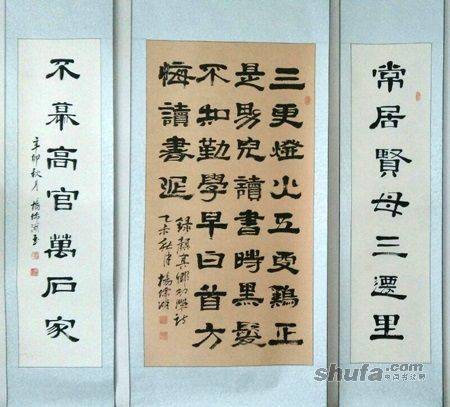 常居賢母三遷里
三更燈火五更鷄正
是男兒讀書時黑髮
不知勤學早白首方
悔讀書遲
錄顏真卿勸學詩
乙未秋月楊
不慕高官萬石家
辛卯秋月楊
shufa.com
中国书法网